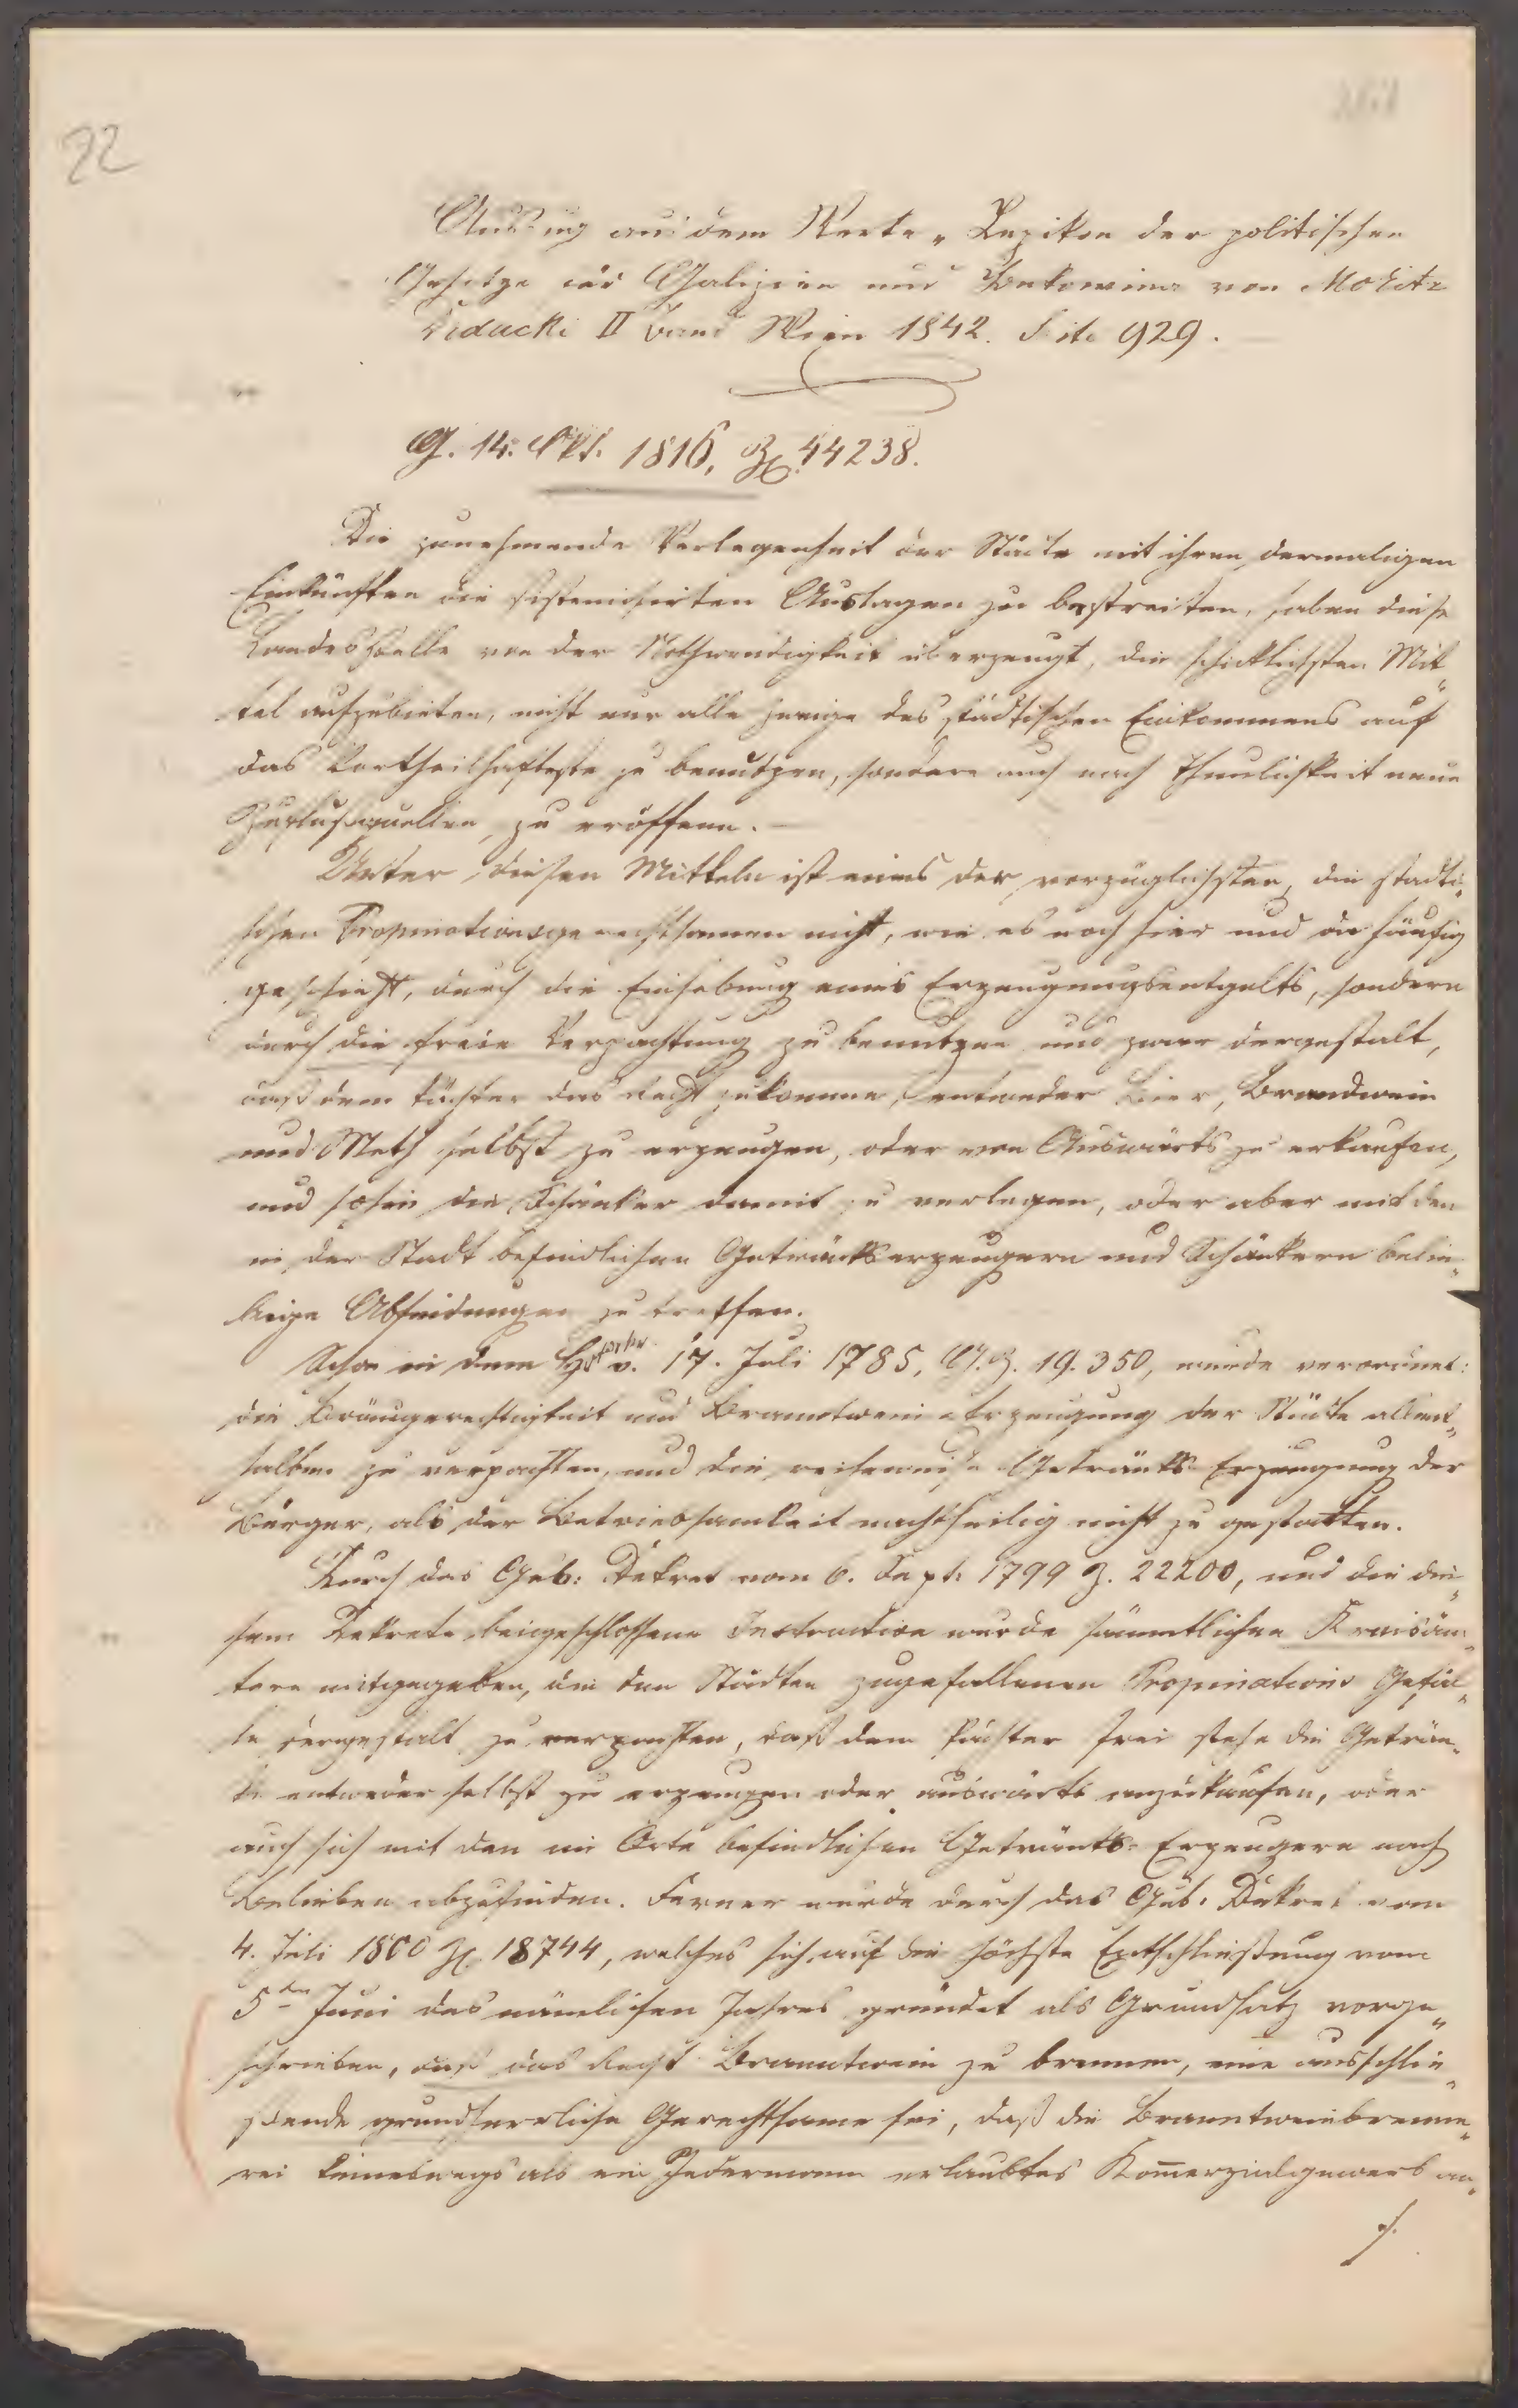 22
Auszug aus dem Werke „Lexikon der politischen
Gesetze für Galizien und Bukowina von Moritz
Drdacki II Band Wien 1842. Seite 929.
G. 14. Okt. 1816, Z. 44238.
Die zunehmende Verlegenheit der Städte mit ihren dermaligen
Einkünften die sistemisirten Auslagen zu bestreiten, haben diese
Landesstelle von der Nothwendigkeit überzeugt, die schicklichsten Mit„
tel aufzubieten, nicht nur alle Zweige des städtischen Einkommens auf
das Vortheilhafteste zu benutzen, sondern auch nach Thunlichkeit neue
Zuflußquellen zu eröffnen. —
Unter diesen Mitteln ist eines der vorzüglichsten, die städti„
schen Propinationsgerechtsamen nicht, wie es noch hier und da häufig
geschieht, durch die Einhebung eines Erzeugungsentgelts, sondern
durch die freie Verpachtung zu benutzen und zwar dergestalt,
daß dem Pächter das Recht zukomme, entweder Bier, Brandwein
und Meth selbst zu erzeugen, oder von Auswärts zu erkaufen,
und sohin die Schänker damit zu verlegen, oder aber mit den
in der Stadt befindlichen Getränkserzeugern und Schänkern belie„
bige Abfindungen zu treffen.
Schon in dem v. 17. Juli 1785, G.Z. 19.350, wurde verordnet:
die Bräugerechtigkeit und Branntwein-Erzeugung der Städte allent„
halben zu verpachten, und die reihenweise Getränks-Erzeugung der
Bürger, als der Betriebsamkeit nachtheilig nicht zu gestatten.
Durch das Gub: Dekret vom 6. Sept. 1799 Z. 22200, und die die„
sem Dekrete beigeschlossene Instruction wurde sämmtlichen Kreisäm„
tern mitgegeben, die den Städten zugefallenen Propinations Gefäl„
le dergestalt zu verpachten, daß dem Pächter frei stehe die Geträn„
ke entweder selbst zu erzeugen oder auswärts anzukaufen, oder
auch sich mit den im Orte befindlichen Getränks-Erzeugern nach
Belieben abzufinden. Ferner wurde durch das Gub. Dekret vom
4. Juli 1800 Z. 18744, welches sich auf die höchste Entschließung vom
5ten Juni des nämlichen Jahres gründet als Grundsatz vorge„
schrieben, daß das Recht Branntwein zu brennen, eine ausschlie„
ßende grundherrliche Gerechtsame sei, daß die Branntweinbrenne„
rei keineswegs als ein Jedermann erlaubtes Kom̅erzialgewerb an„
./.